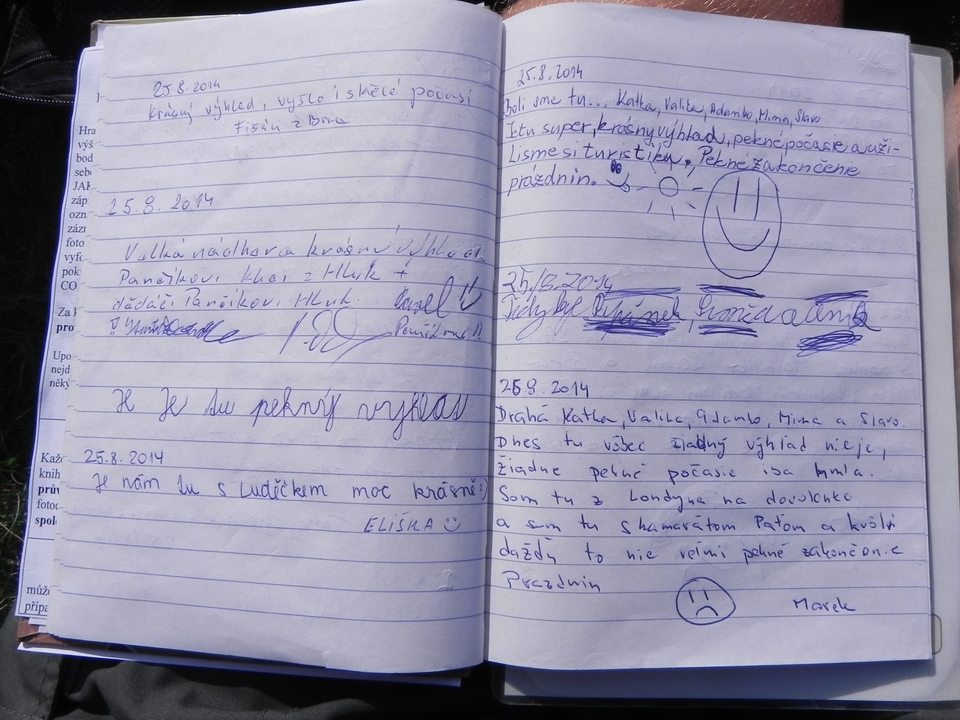 25.8.2014
krásný výhled, vyšlo i skělé počasí
Fišáři z Brna
25.8.2014
Velká nádhera krásný výhled
Pančíkovi Khai z Hluk +
dědáči Pančíkovi Hluk.
Je tu pekný vyhlad
25.8.2014
Je nám tu s Ludíčkem moc krásně :)
ELIŠKA
25.8.2014
Boli sme tu... Katka, Valika, Adamko, Mima, Slavo
Je tu super, krásny výhlad, pekné počasie a uži-
Lisme si turistiku. Pekné zakončenie
prázdnin.
25.8.2014
Tady byl
26 8 2014
Drahá Katka, Valika, Adamko, Mima a Slavo.
Dnes tu vôbec žiadný výhľad nieje,
žiadne pekné počasie iba hmla.
Som tu z Londyna na dovolenke
a som tu s kamarátom Paťom a kvôli
dažďu to nie veľmi pekné zakončenie
Prazdnin
Marek
Hra
výš
bod
seb
JAK
záp
ozn
zázr
foto
vyfo
pok
CO
Za
pro
Upo
nejd
něký
Kaž
knih
prův
fotoc
spol
můž
přípa